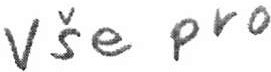 Vše pro